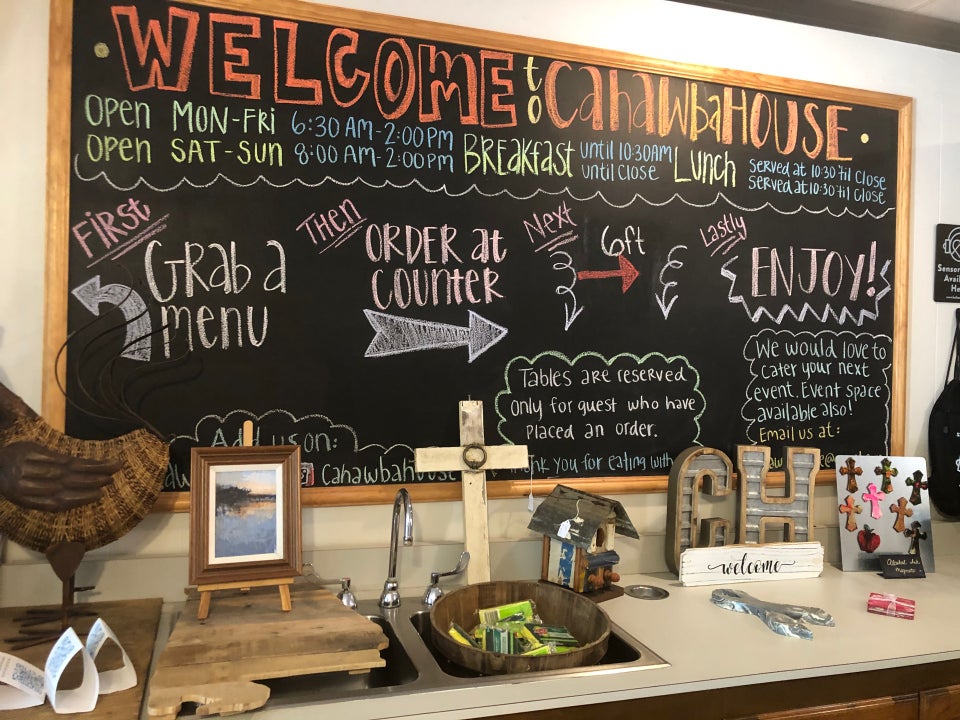 WELCOME to CahawbaHOUSE
Open MON-FRI 6:30 AM-2:00PM BREAKfast until 10:30AM Lunch Served at 10:30 'til Close
Open SAT-SUN 8:00 AM-2:00PM until Close Served at 10:30 'til Close
First
Grab a
menu
Then
ORDER at
COUNTER
Next
6ft
Lastly
ENJOY!
Tables are reserved
only for guest who have
placed an order.
We would love to
cater your next
event. Event space
available also!
Email us at:
Add us on:
Cahawbahouse
you for eating with
CH
welcome
Alcohol Ink
Magnets
Sensory